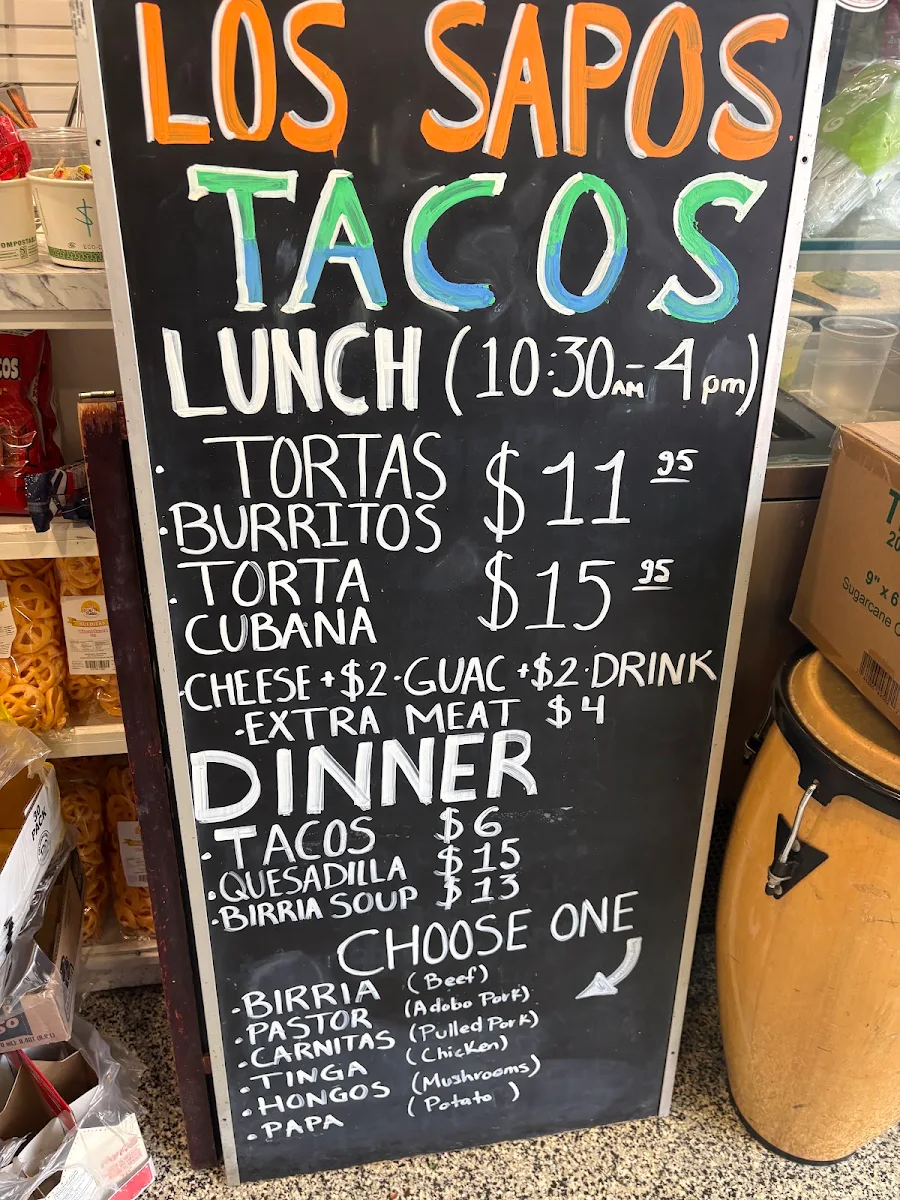 LOS SAPOS
TACOS
LUNCH (10:30AM - 4 pm)
· TORTAS
· BURRITOS $11 95
· TORTA
CUBANA $15 95
· CHEESE +$2 · GUAC +$2 · DRINK
· EXTRA MEAT $4
DINNER
· TACOS $6
· QUESADILLA $15
· BIRRIA SOUP $13
CHOOSE ONE
· BIRRIA (Beef)
· PASTOR (Adobo Pork)
· CARNITAS (Pulled Pork)
· TINGA (Chicken)
· HONGOS (Mushrooms)
· PAPA (Potato )
9" x 6
Sugarcane
$
30 PACK